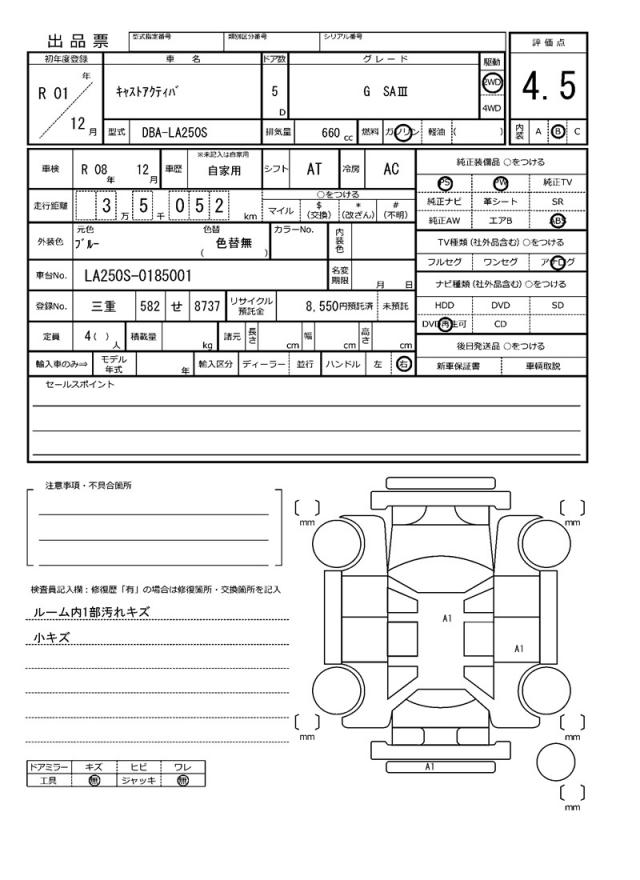 出品票 型式指定番号 類別区分番号 シリアル番号
初年度登録 車 名 ドア数 グレード 駆動 評価点
R 01 年 12 月
キャストアクティバ 5 D G SAⅢ 2WD 4WD
4.5
型式 DBA-LA250S 排気量 660 cc 燃料 ガソリン 軽油 ( )
内装 A B C
車検 R 08 年 12 月 車歴 ※未記入は自家用 自家用 シフト AT 冷房 AC
純正装備品 ○をつける
PS PW 純正TV
純正ナビ 革シート SR
純正AW エアB ABS
走行距離 3 万 5 千 0 5 2 km
○をつける
マイル $ (交換) * (改ざん) # (不明)
外装色 元色 ブルー 色替 ( 色替無 ) カラーNo. 内装色
TV種類 (社外品含む) ○をつける
フルセグ ワンセグ アナログ
車台No. LA250S-0185001 名変期限 月 日
ナビ種類 (社外品含む) ○をつける
HDD DVD SD
DVD再生可 CD
登録No. 三重 582 せ 8737 リサイクル預託金 8,550円預託済 未預託
定員 4 ( ) 人 積載量 kg 諸元 長さ cm 幅 cm 高さ cm
後日発送品 ○をつける
新車保証書 車輌取説
輸入車のみ⇒ モデル年式 年 輸入区分 ディーラー 並行 ハンドル 左 右
セールスポイント
注意事項・不具合箇所
検査員記入欄：修復歴「有」の場合は修復箇所・交換箇所を記入
ルーム内1部汚れキズ
小キズ
ドアミラー キズ ヒビ ワレ
工具 無 ジャッキ 無
mm mm
A1
A1
mm mm
A1
mm